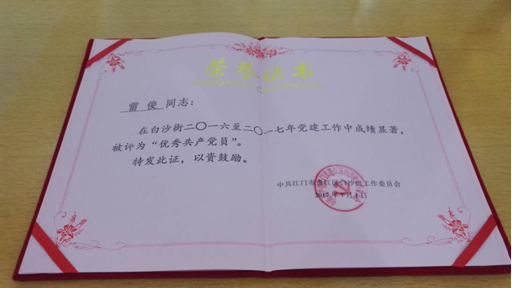 荣誉证书
雷俊 同志：
在白沙街二〇一六至二〇一七年党建工作中成绩显著，
被评为“优秀共产党员”。
特发此证，以资鼓励。
中共江门市蓬江区白沙街工作委员会
2017年7月1日